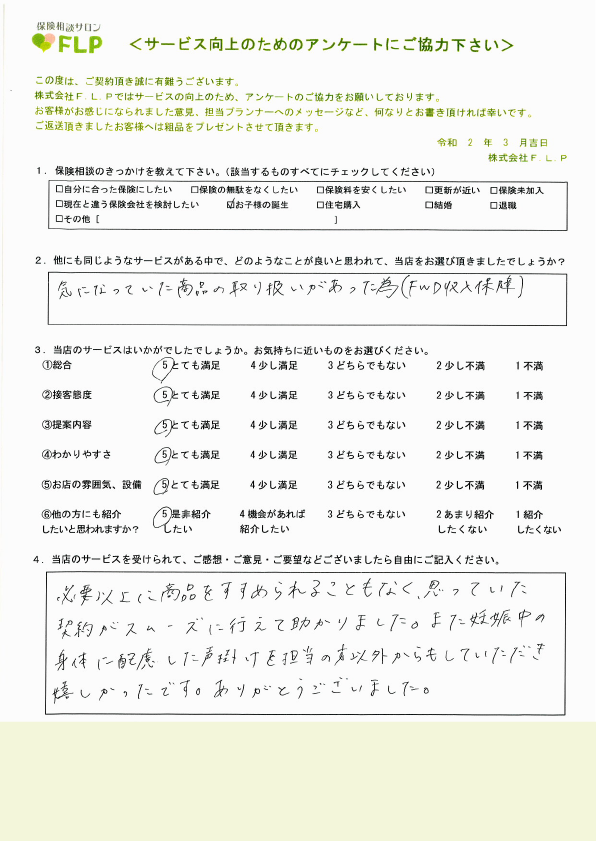 保険相談サロン
FLP
＜サービス向上のためのアンケートにご協力下さい＞
この度は、ご契約頂き誠に有難うございます。
株式会社F．L．Pではサービスの向上のため、アンケートのご協力をお願いしております。
お客様がお感じになられました意見、担当プランナーへのメッセージなど、何なりとお書き頂ければ幸いです。
ご返送頂きましたお客様へは粗品をプレゼントさせて頂きます。
令和 2 年 3 月吉日
株式会社F．L．P
1．保険相談のきっかけを教えて下さい。（該当するものすべてにチェックしてください）
□自分に合った保険にしたい □保険の無駄をなくしたい □保険料を安くしたい □更新が近い □保険未加入
□現在と違う保険会社を検討したい ☑お子様の誕生 □住宅購入 □結婚 □退職
□その他［ ］
2．他にも同じようなサービスがある中で、どのようなことが良いと思われて、当店をお選び頂きましたでしょうか？
気になっていた商品の取り扱いがあった為(FWD収入保障)
3．当店のサービスはいかがでしたでしょうか。お気持ちに近いものをお選びください。
①総合 5とても満足 4少し満足 3どちらでもない 2少し不満 1不満
②接客態度 5とても満足 4少し満足 3どちらでもない 2少し不満 1不満
③提案内容 5とても満足 4少し満足 3どちらでもない 2少し不満 1不満
④わかりやすさ 5とても満足 4少し満足 3どちらでもない 2少し不満 1不満
⑤お店の雰囲気、設備 5とても満足 4少し満足 3どちらでもない 2少し不満 1不満
⑥他の方にも紹介 5是非紹介 4機会があれば 3どちらでもない 2あまり紹介 1紹介
したいと思われますか？ したい 紹介したい したくない したくない
4．当店のサービスを受けられて、ご感想・ご意見・ご要望などございましたら自由にご記入ください。
必要以上に商品をすすめられることもなく、思っていた
契約がスムーズに行えて助かりました。また妊娠中の
身体に配慮した声掛けを担当の方以外からもしていただき
嬉しかったです。ありがとうございました。